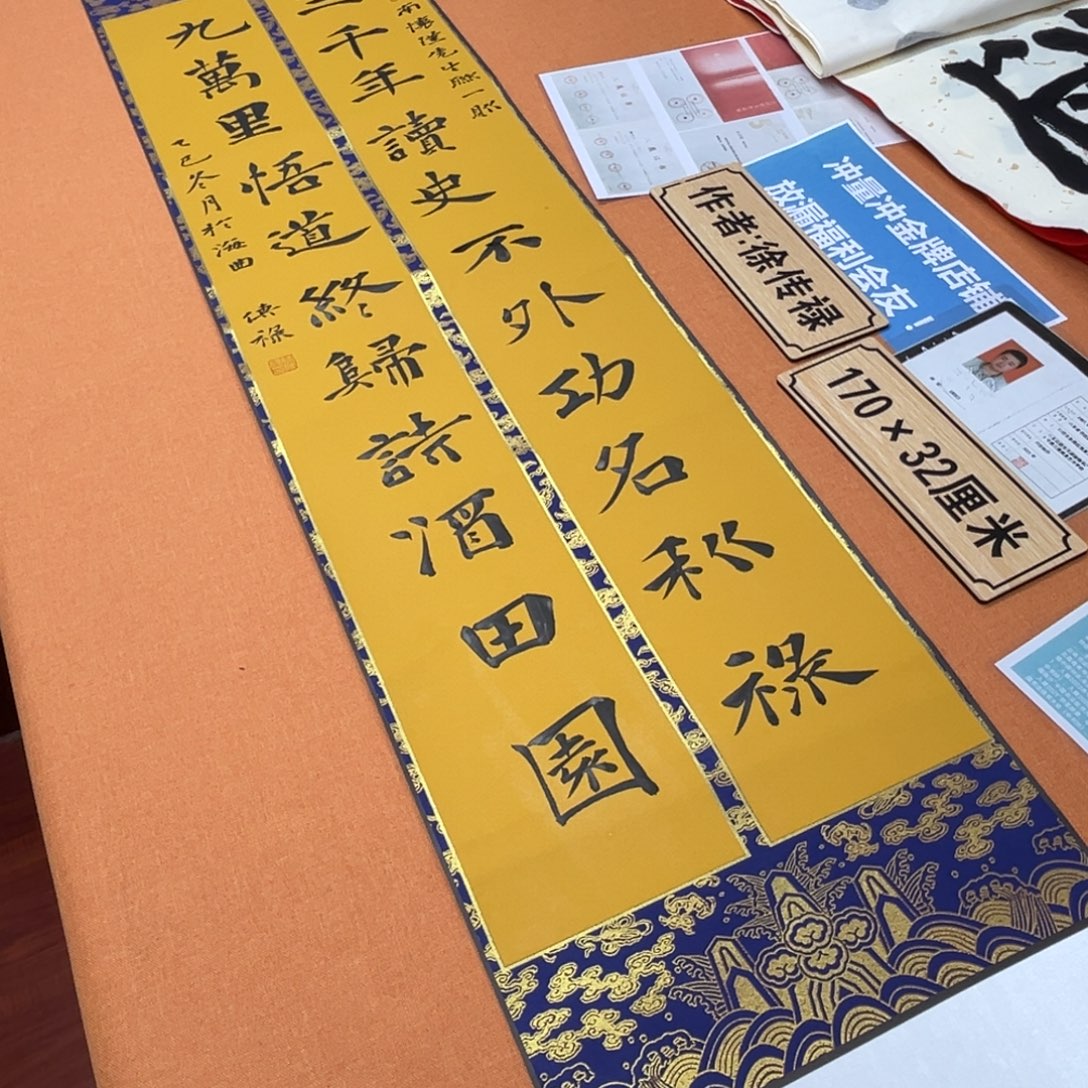 南懷瑾先生联一
三千年讀史不外功名利禄
九萬里悟道終歸詩酒田園
乙巳冬月於海曲
傳禄
作者:徐传禄
170×32厘米
冲量冲金牌店铺
放漏福利会友！
道